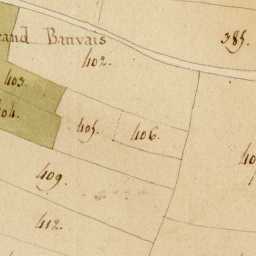 rand Banvais
385.
402.
403.
404.
405.
406.
409.
412.